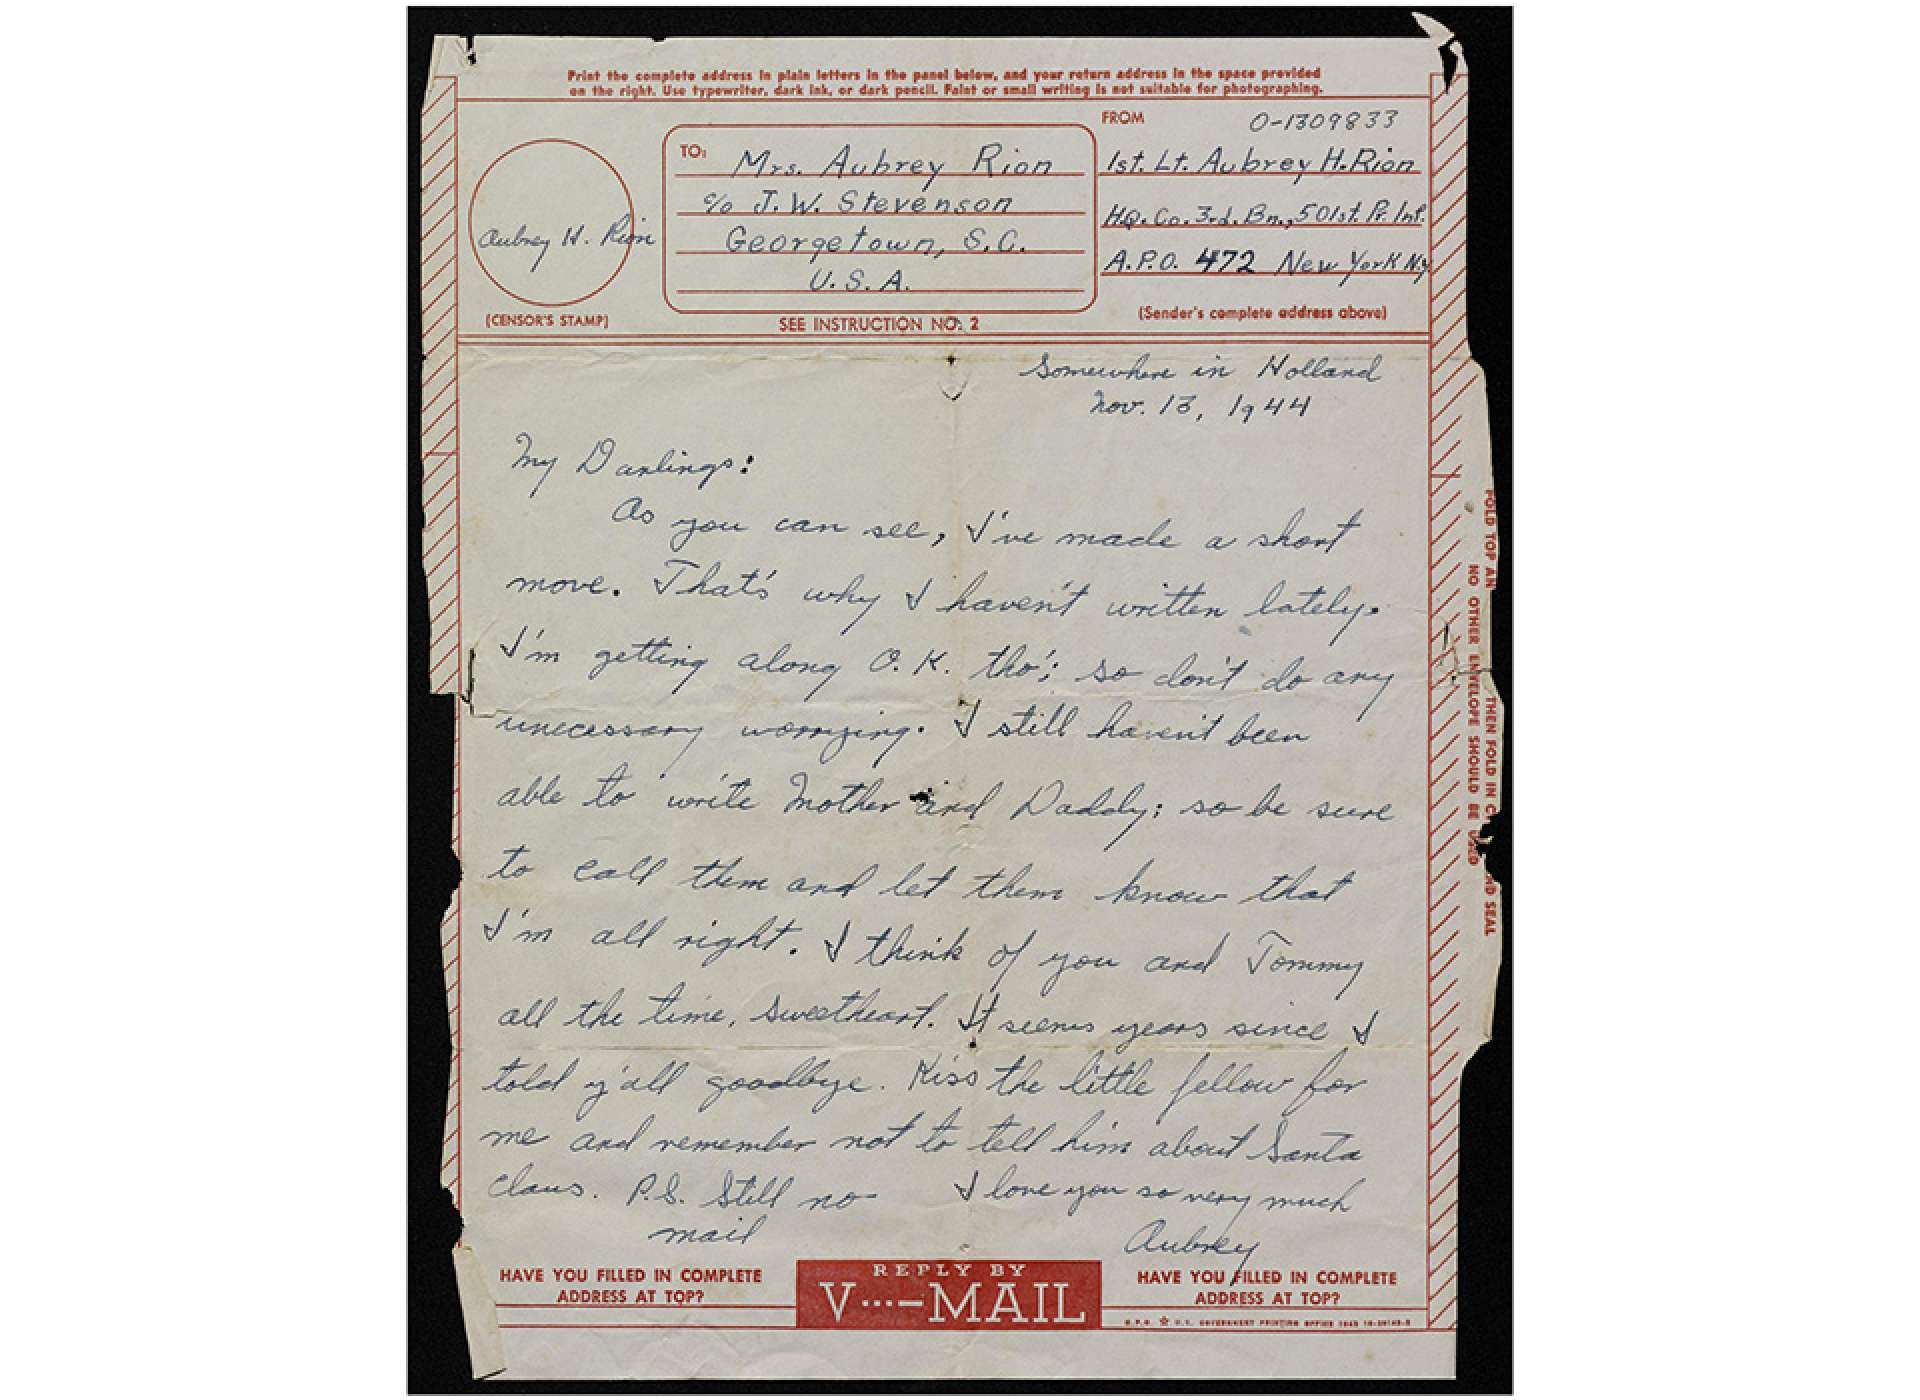 Print the complete address in plain letters in the panel below, and your return address in the space provided
on the right. Use typewriter, dark ink, or dark pencil. Faint or small writing is not suitable for photographing.
Aubrey H. Rion
(CENSOR'S STAMP)
TO:
Mrs. Aubrey Rion
c/o J. W. Stevenson
Georgetown, S.C.
U. S. A.
SEE INSTRUCTION NO. 2
FROM
O-1309833
1st. Lt. Aubrey H. Rion
HQ. Co. 3rd. Bn., 501st. Pr. Inf.
A.P.O. 472 New York N.Y
(Sender's complete address above)
Somewhere in Holland
Nov. 13, 1944
My Darlings:
As you can see, I've made a short
move. That's why I haven't written lately.
I'm getting along O. K. tho'; so don't do any
unecessary worrying. I still haven't been
able to write Mother and Daddy; so be sure
to call them and let them know that
I'm all right. I think of you and Tommy
all the time, sweetheart. It seems years since I
told y'all goodbye. Kiss the little fellow for
me and remember not to tell him about Santa
Claus. P.S. Still no
mail
I love you so very much
Aubrey
HAVE YOU FILLED IN COMPLETE
ADDRESS AT TOP?
REPLY BY
V···—MAIL
HAVE YOU FILLED IN COMPLETE
ADDRESS AT TOP?
U.S. GOVERNMENT PRINTING OFFICE
FOLD TOP AN THEN FOLD IN ND SEAL
NO OTHER ENVELOPE SHOULD BE USED